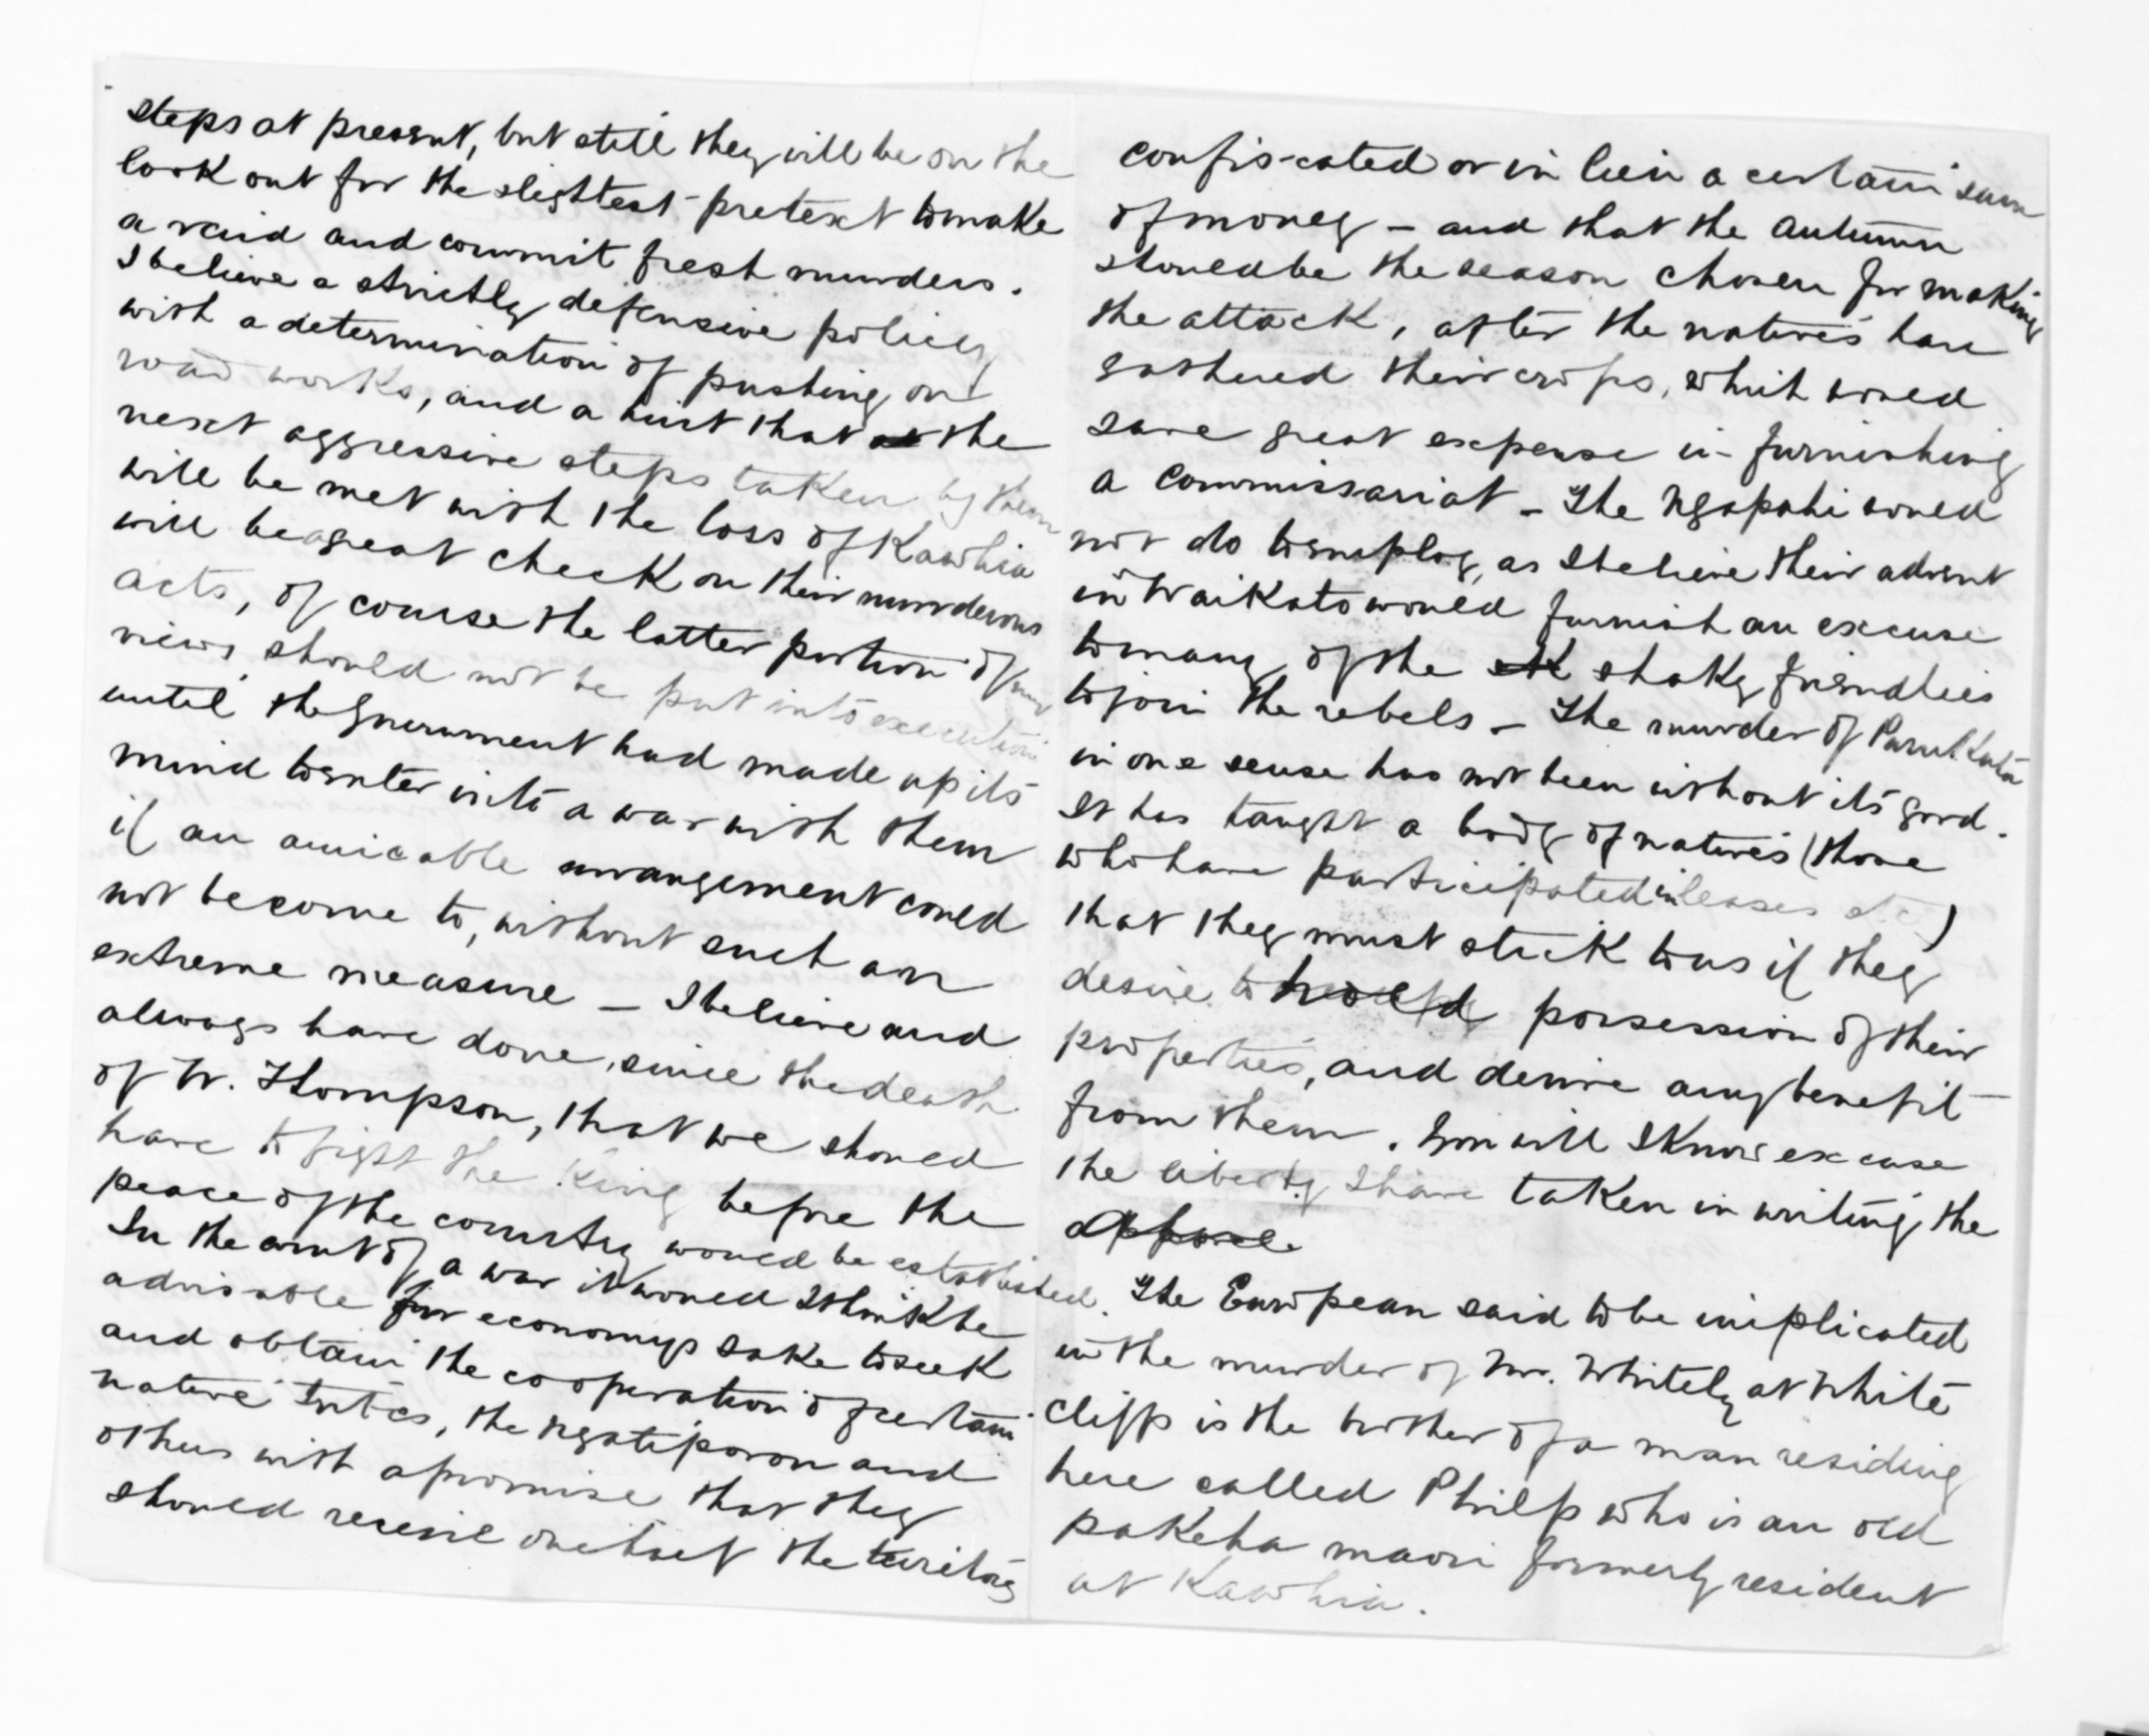 steps at present, but still they will be on the
look out for the slightest pretext to make
a raid and commit fresh murders.
I believe a strictly defensive policy
with a determination of pushing on
road works, and a hint that the
next aggressive steps taken by them
will be met with the loss of Kawhia
will be a great check on their murderous
acts, of course the latter portion of my
views should not be put into execution
until the Government had made up its
mind to enter into a war with them
if an amicable arrangement could
not be come to, without such an
extreme measure – I believe and
always have done, since the death
of W. Thompson, that we should
have to fight the King before the
peace of the country would be established.
In the event of a war it would I think be
advisable for economys sake to seek
and obtain the cooperation of certain
native tribes, the Ngatiporou and
others with a promise that they
should receive out of the teritory
confis-cated or in lieu a certain sum
of money – and that the Autumn
should be the season chosen for making
the attack, after the natives have
gathered their crops, which would
save great expense in furnishing
a commissariat – The Ngapuhi would
not do to employ, as I believe their advent
in Waikato would furnish an excuse
to many of the shaky friendlies
to join the rebels – The murder of
in one sense has not been without its good.
It has taught a body of natives (those
who have participated in leases etc)
that they must stick to us if they
desire to possession of their
properties, and derive any benefit
from them. You will I know excuse
the liberty I have taken in writing the
above.
The European said to be implicated
in the murder of Mr. Whitely at White
Cliffs is the brother of a man residing
here called Philp who is an old
pakeha maori formerly resident
at Kawhia.